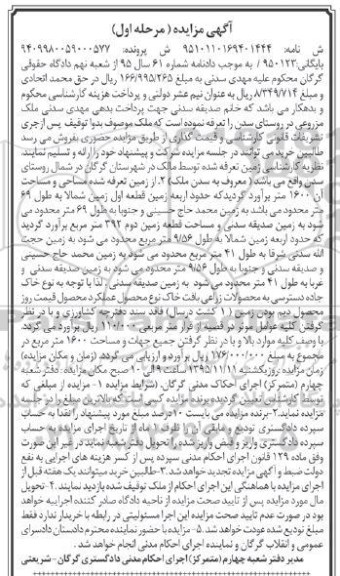 آگهی مزایده ( مرحله اول)
ش نامه: ۹۵۱۰۱۱۰۱۶۹۴۰۱۴۴۴ ش پرونده: ۹۴۰۹۹۸۰۰۵۹۰۰۰۵۷۷
بایگانی:۹۵۰۱۲۳ / به موجب دادنامه شماره ۶۱ سال ۹۵ از شعبه نهم دادگاه حقوقی
گرگان محکوم علیه مهدی سدنی به مبلغ ۱۶۶/۹۹۵/۲۶۵ ریال در حق محمد اتحادی
و مبلغ ۸/۳۴۹/۷۱۴ ریال به عنوان نیم عشر دولتی و پرداخت هزینه کارشناسی محکوم
و بدهکار می باشد که خانم صدیقه سدنی جهت پرداخت بدهی مهدی سدنی ملک
مزروعی در روستای سدن را تعرفه نموده است که ملک موصوف بدوا توقیف پس از جری
تشریفات قانونی کارشناسی و قیمت گذاری از طریق مزایده حضوری بفروش می رسد
طالبین خرید می توانند در جلسه مزایده شرکت و پیشنهاد خود را ارائه و تسلیم نمایند.
نظریه کارشناسی زمین تعرفه شده توسط مالک در شهرستان گرگان در شمال روستای
سدن واقع می باشد ( معروف به سدن ملک) ۲. از زمین تعرفه شده مساحی و مساحت
آن ۱۶۰۰ متر برآورد گردید که حدود اربعه زمین قطعه اول زمین شمالا به طول ۶۹
متر محدود می باشد به زمین محمد حاج حسینی و جنوبا به طول ۶۹ متر محدود می
شود به زمین صدیقه سدنی و مساحت قطعه زمین دوم ۳۹۲ متر مربع برآورد گردید
که حدود اربعه زمین شمالا به طول ۹/۵۶ متر مربع محدود می شود به زمین حجت
الله سدنی شرقا به طول ۴۱ متر مربع محدود می شود به زمین محمد حاج حسینی
و صدیقه سدنی و جنوبا به طول ۹/۵۶ متر محدود می شود به زمین صدیقه سدنی و
غربا به طول ۴۱ متر محدود می شود به زمین صدیقه سدنی. لذا با توجه به نوع خاک
جاده دسترسی به محصولات زراعی بافت خاک نوع محصول عملکرد محصول قیمت روز
محصول دیم بودن زمین (۱ کشت درسال) فاقد سند دفترچه کشاورزی و با در نظر
گرفتن کلیه عوامل موثر در قضیه از قرار متر مربعی ۱۱۰/۰۰۰ ریال برآورد می گردد.
با وصف کلیه موارد بالا و با در نظر گرفتن جمیع جهات و مساحت ۱۶۰۰ متر مربع در
مجموع به مبلغ ۱۷۶/۰۰۰/۰۰۰ ریال برآورد و ارزیابی می گردد. (زمان و مکان مزایده)
زمان مزایده روز یکشنبه ۱۳۹۵/۱۱/۱۱ ساعت ۹ الی ۱۰ صبح. مکان مزایده : دفتر شعبه
چهارم (متمرکز) اجرای احکام مدنی گرگان. (شرایط مزایده) ۱- مزایده از مبلغی که
توسط کارشناس تعیین گردیده برنده مزایده کسی است که بالاترین مبلغ را در جلسه
مزایده نماید.۲-برنده مزایده می بایست ۱۰درصد مبلغ مورد پیشنهاد را نقدا به حساب
سپرده دادگستری تودیع و مابقی را تا ظرف ۱ ماه از تاریخ اجرای مزایده بحساب
سپرده دادگستری واریز و فیش واریز شده را تحویل دفتر شعبه نماید در غیر این صورت
وفق ماده ۱۲۹ قانون اجرای احکام مدنی سپرده پس از کسر هزینه های اجرایی به نفع
دولت ضبط و آگهی مزایده تجدید خواهد شد. ۳-طالبین خرید میتوانند یک هفته قبل از
اجرای مزایده با هماهنگی این اجرای احکام از ملک توقیف شده بازدید نمایند. ۴-تحویل
مال مورد مزایده پس از تایید صحت مزایده از ناحیه دادگاه صادر کننده اجراییه خواهد
بود در صورت عدم تایید صحت مزایده این اجرا مسئولیتی در رابطه با خریدار ندارد فقط
مبلغ تودیع شده عودت خواهد شد. ۵-مزایده با حضور نماینده محترم دادستان دادسرای
عمومی و انقلاب گرگان و نماینده اجرای احکام مدنی انجام خواهد شد .
مدیر دفتر شعبه چهارم (متمرکز) اجرای احکام مدنی دادگستری گرگان – شریعتی